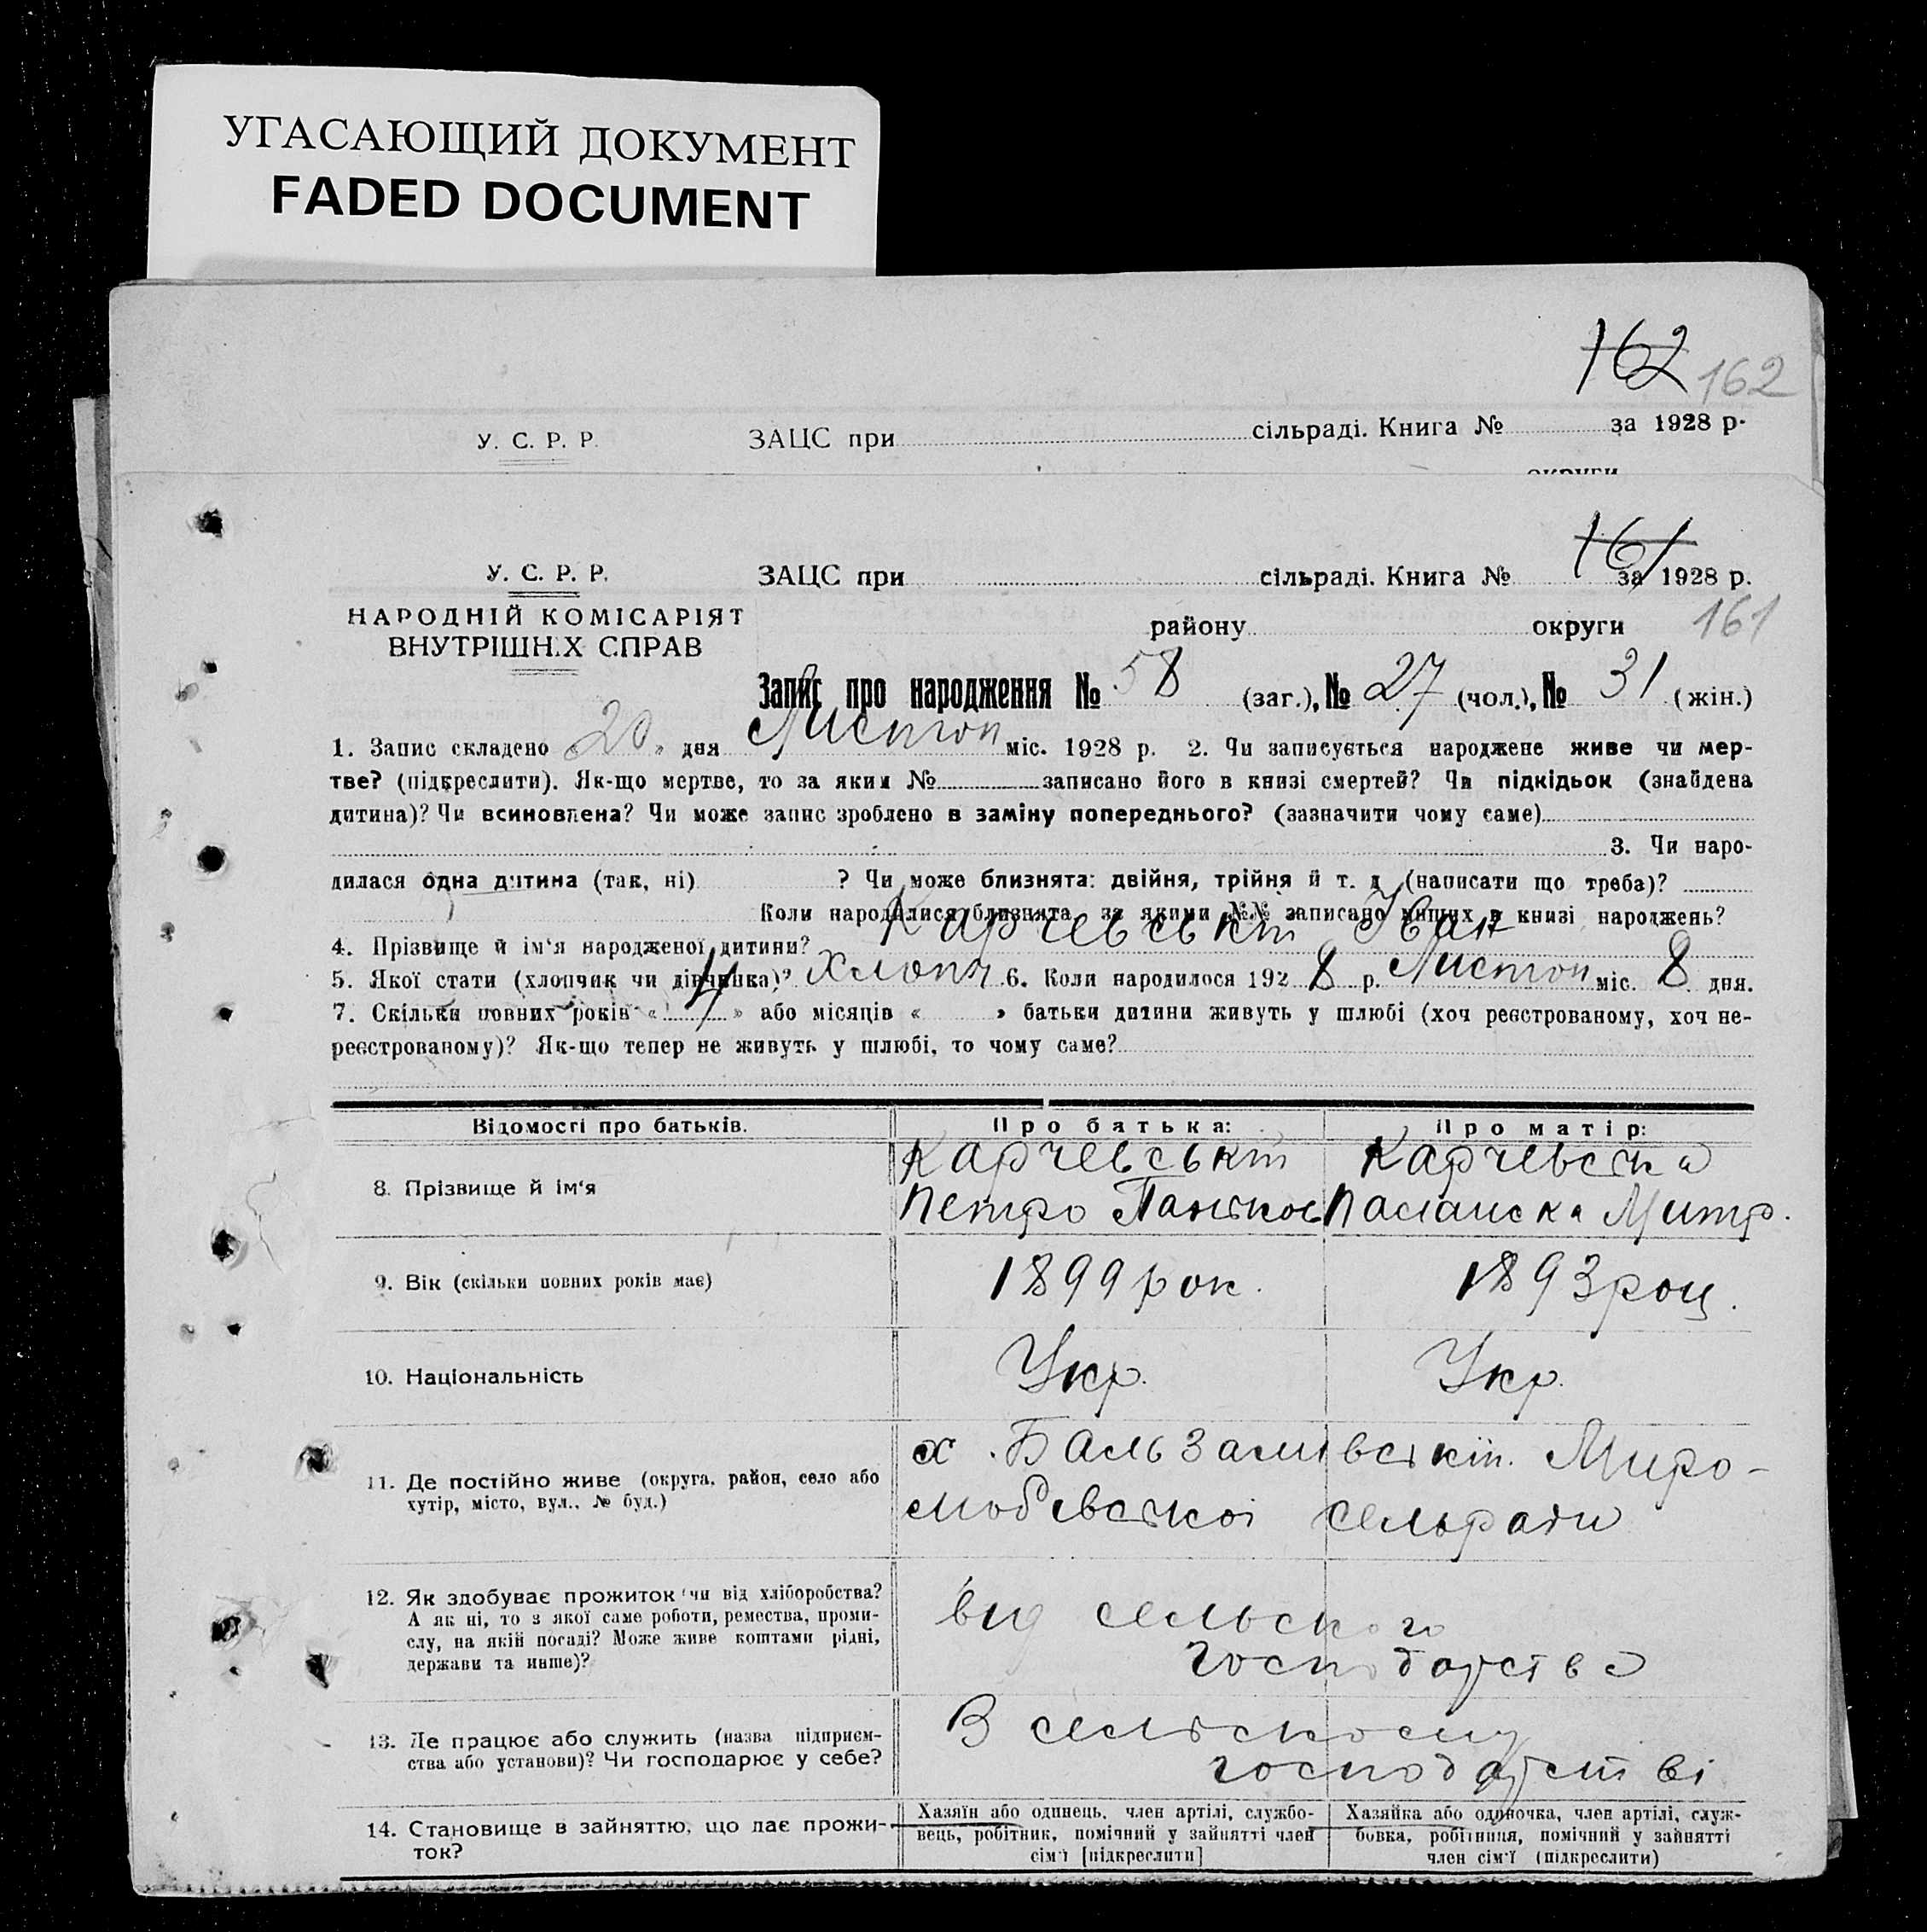 УГАСАЮЩИЙ ДОКУМЕНТ
FADED DOCUMENT
162 162
У. С. Р. Р. ЗАЦС при сільраді. Книга № за 1928 р.
округи
161
У. С. Р. Р. ЗАЦС при сільраді. Книга № за 1928 р.
НАРОДНІЙ КОМІСАРІЯТ
ВНУТРІШН.Х СПРАВ
району округи 161
Запис про народження № 58 (заг.), № 27 (чол.), № 31 (жін.)
1. Запис складено « 20 » дня Листоп міс. 1928 р. 2. Чи записується народжене живе чи мер-
тве? (підкреслити). Як-що мертве, то за яким № записано його в книзі смертей? Чи підкідьок (знайдена
дитина)? Чи всиновлена? Чи може запис зроблено в заміну попереднього? (зазначити чому саме)
3. Чи наро-
дилася одна дитина (так, ні) ? Чи може близнята: двійня, трійня й т. д (написати що треба)?
Коли народилися близнята, за якими №№ записано инших в книзі народжень?
4. Прізвище й ім'я народженої дитини? Карчевськiй Iван
5. Якої стати (хлопчик чи дівчинка)? Хлопч 6. Коли народилося 192 8 р. Листоп міс. 8 дня.
7. Скільки повних років « 4 » або місяців « » батьки дитини живуть у шлюбі (хоч реєстрованому, хоч не-
реєстрованому)? Як-що тепер не живуть у шлюбі, то чому саме?
Відомості про батьків. Про батька: Про матір:
8. Прізвище й ім'я
Карчевськiй Карчевська
Петро Паньков Митр.
9. Вік (скільки повних років має) 1899 рок. 1893 роц.
10. Національність Укр. Укр.
11. Де постійно живе (округа, район, село або
хутір, місто, вул., № буд.)
х. Бальзамiвськiй. Миро-
любевськоi сельради
12. Як здобуває прожиток (чи від хліборобства?
А як ні, то з якої саме роботи, ремества, проми-
слу, на якій посаді? Може живе коштами рідні,
держави та инше)?
вид сельского
господарства
13. Де працює або служить (назва підприєм-
ства або установи)? Чи господарює у себе?
В сельскому
господарстві
14. Становище в зайняттю, що дає прожи-
ток?
Хазяїн або одинець, член артілі, службо-
вець, робітник, помічний у зайнятті член
сім'ї [підкреслити]
Хазяйка або одиночка, член артілі, служ-
бовка, робітниця, помічний у зайнятті
член сім'ї (підкреслити)